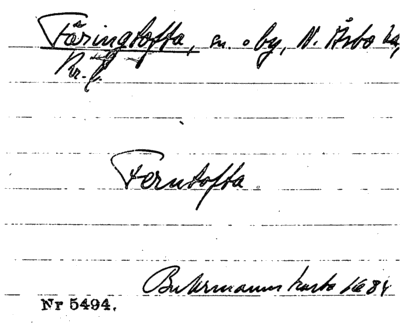 Färingtofta, sn. o by, N. Åsbo hd,
Kr. l.
Ferntofta.
Buhrmanns karta 1684
Nr 5494.